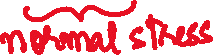 normal stress